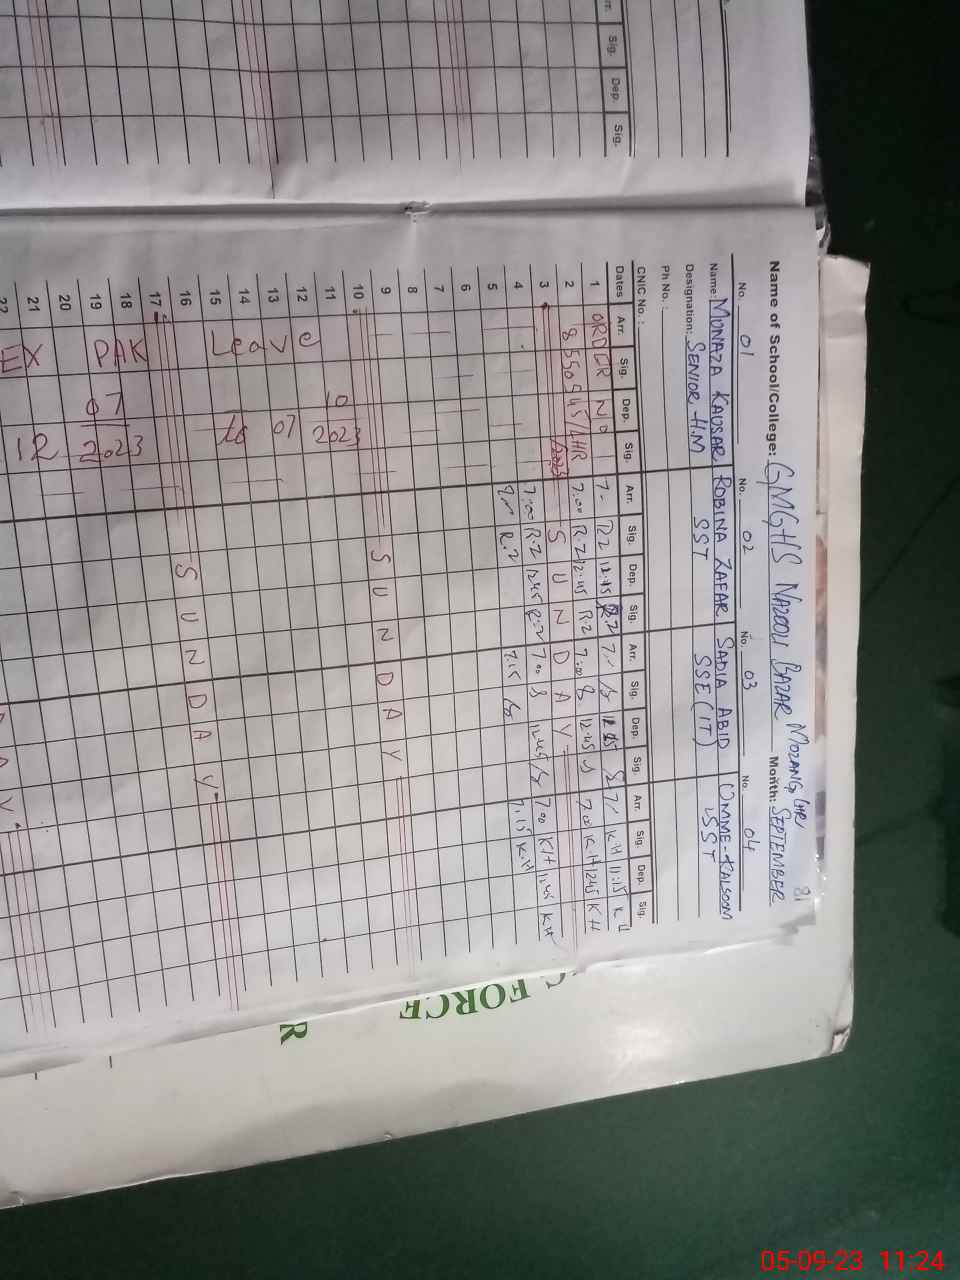 Name of School/College: GMGHS NAZOOL BAZAR MOZANG, LHR Month: SEPTEMBER
No. 01 No. 02 No. 03 No. 04
Name: MUNAZA KAUSAR ROBINA ZAFAR SADIA ABID UMME-KALSOOM
Designation: SENIOR H.M SST SSE (IT) SST
Ph No. :
CNIC No. :
Dates Arr. Sig. Dep. Sig. Arr. Sig. Dep. Sig. Arr. Sig. Dep. Sig. Arr. Sig. Dep. Sig.
1 ORDER NO 7- RZ 12:45 R.Z 7:- K.H 11:15 K H
2 8550545/LHR 7:00 R.Z 12:45 RZ 7:00 12:45 7:00 K.H 12:45 K H
3 2023 SUNDAY
4 7:00 R.Z 12:45 R.Z 7:00 12:45 7:00 KH 12:45 KH
5 R.Z 7.15 7.15 K.H
6
7
8
9
10 SUNDAY
11 10
12 Leave 07 2023
13
14 to
15
16
17 SUNDAY
18 PAK 07
19 2023
20
21 EX R
22
Sig. Dep. Sig.
FORCE
R
05-09-23 11:24